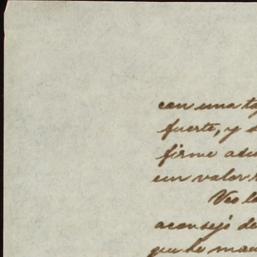 con una
fuerte, y
firme
un valor
Veo
aconsejó de
que la